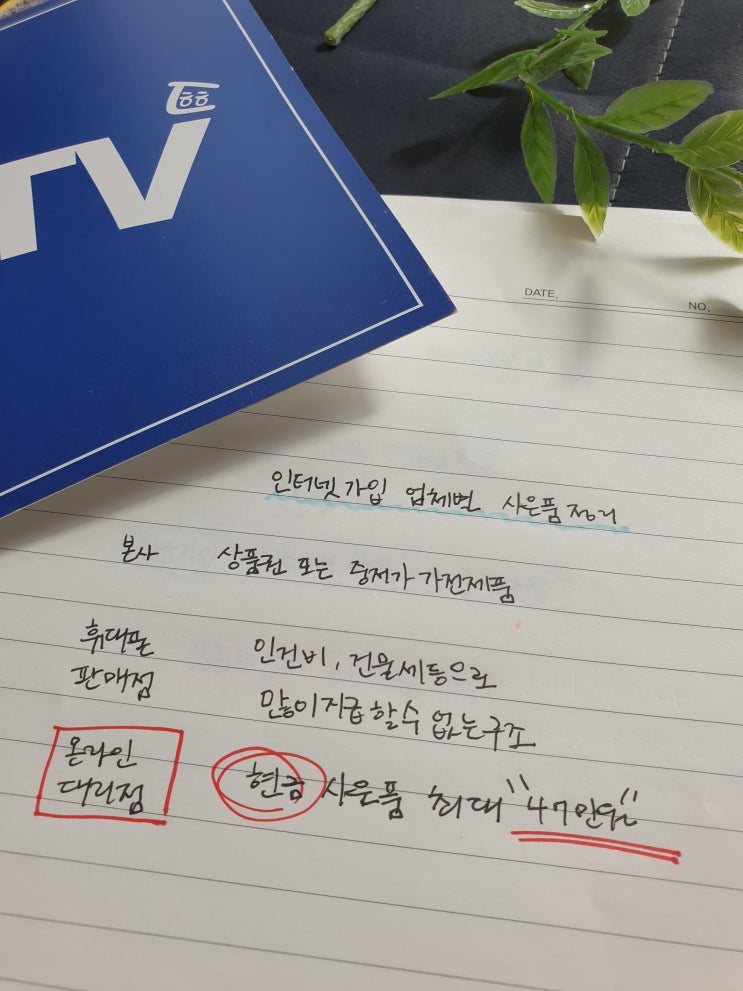 흥흥
TV
DATE.
NO.
인터넷가입 업체별 사은품정리
본사 상품권 또는 중저가 가전제품
휴대폰
판매점
인건비, 건물세등으로
많이지급 할수 없는구조
온라인
대리점
현금 사은품 최대 "47만원"